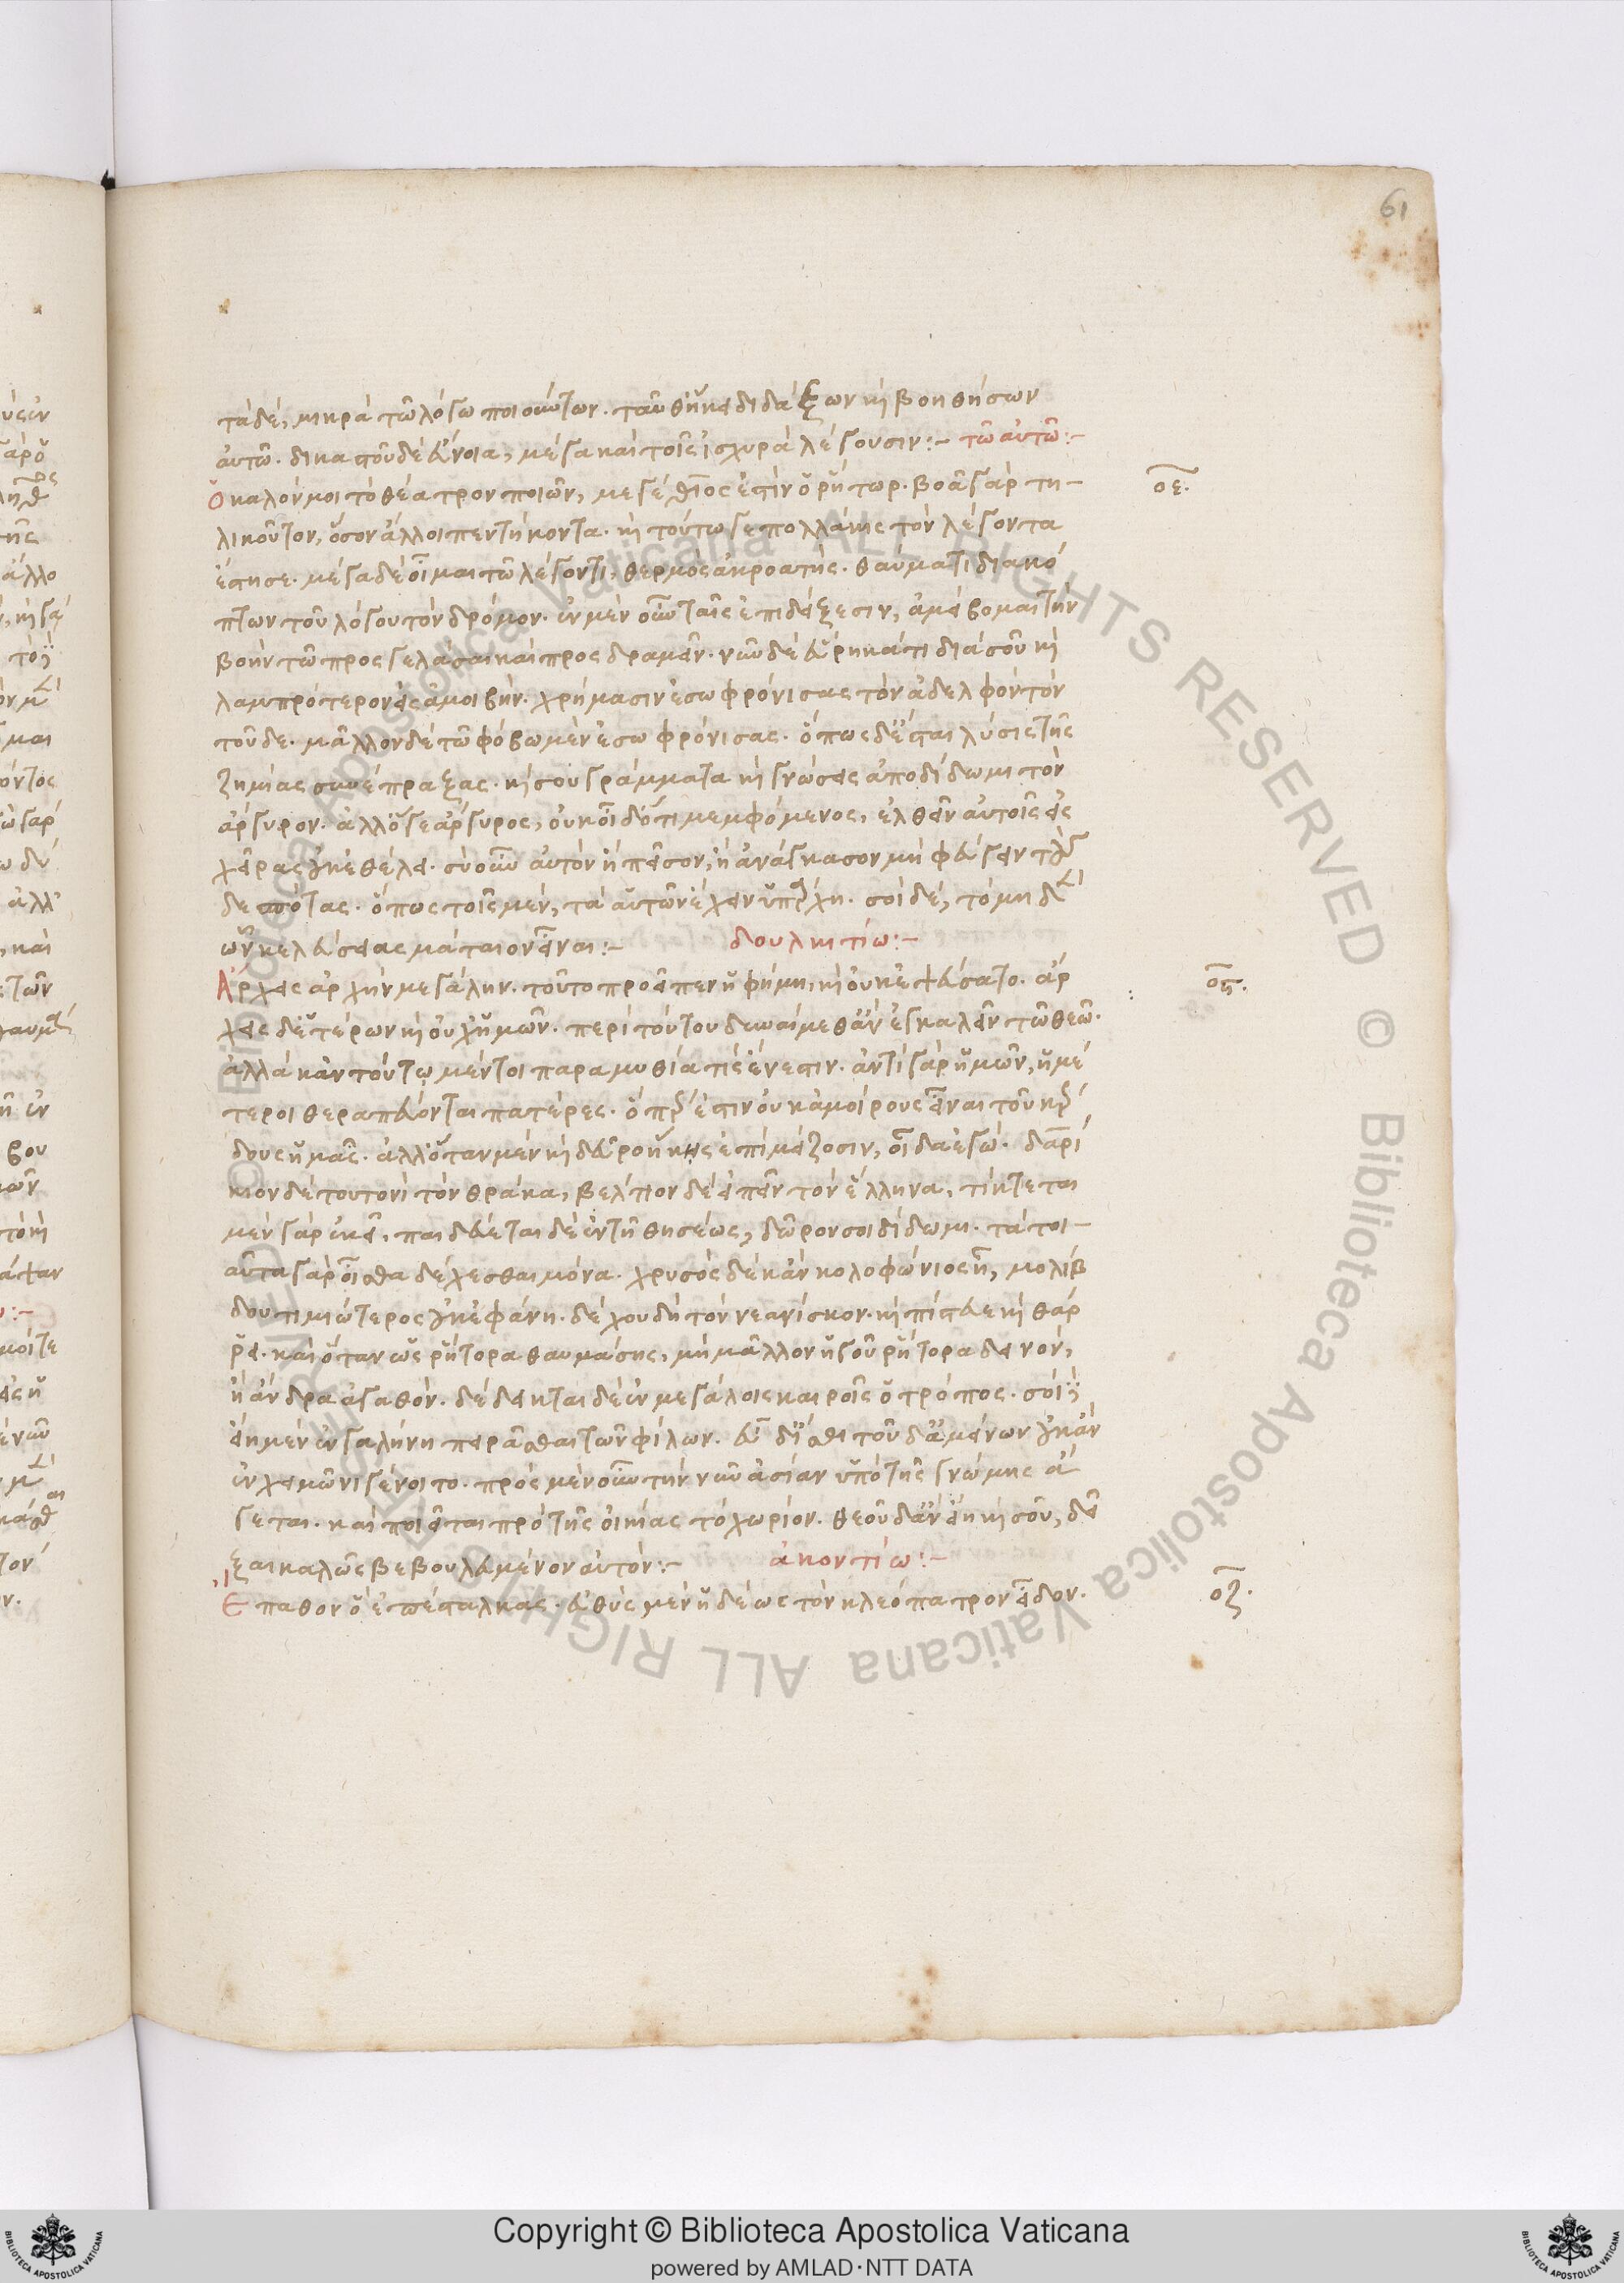 61
τὰ δὲ, μικρὰ τῶ λόγω ποιούντων. ταῦθ ἥκει διδάξων καὶ βοηθήσων
αὐτῶ. δικαστοῦ δὲ εὔνοια, μέγα καὶ τοῖς ἰσχυρὰ λέγουσιν :- τῶ αὐτῶ :-
Ὁ καλόν μοι τὸ θέατρον ποιῶν, μεγέθιος ἐστὶν ὁ ῥήτωρ. βοᾶ γὰρ τη-
λικοῦτον, ὅσον ἄλλοι πεντήκοντα. καὶ τούτω γε πολλάκις τὸν λέγοντα
ἔστησε. μέγα δὲ οἶμαι τῶ λέγοντι, θερμὸς ἀκροατὴς. θαύματι διακό
πτων τοῦ λόγου τὸν δρόμον. ἐν μὲν οὖν ταῖς ἐπιδείξεσιν, ἀμείβομαι τὴν
βοὴν τῶ προσγελάσαι καὶ προσδραμεῖν. νῦν δὲ εὕρηκά τι διὰ σοῦ καὶ
λαμπρότερον εἰς ἀμοιβήν. χρήμασιν ἐσωφρόνισας τὸν ἀδελφὸν τὸν
τοῦδε. μᾶλλον δὲ τῶ φόβω μὲν ἐσωφρόνισας. ὅπως δὲ ἔσται λύσις τῆς
ζημίας συνέπραξας. καὶ σοῦ γράμματα καὶ γνώσεις ἀποδίδωμι τὸν
ἄργυρον. ἀλλ' ὅ γε ἄργυρος, οὐκ οἶδ' ὅτι μεμφόμενος, ἐλθεῖν αὐτοῖς εἰς
χεῖρας οὐκ ἐθέλει. σὺ οὖν αὐτὸν ἢ πεῖσον, ἢ ἀνάγκασον μὴ φεύγειν τοὺς
δεσπότας. ὅπως τοῖς μὲν, τὰ αὑτῶν ἔχειν ὑπάρχη. σοὶ δὲ, τὸ μηδὲν
ὧν κελεύσειας μάταιον εἶναι :- δουλκιτίω :-
Ἄρχεις ἀρχὴν μεγάλην. τοῦτο προεῖπεν ἡ φήμη, καὶ οὐκ ἐψεύσατο. ἄρ
χεις δὲ ἑτέρων καὶ οὐχ ἡμῶν. περὶ τούτου δυναίμεθ' ἂν ἐγκαλεῖν τῶ θεῶ.
ἀλλὰ κἂν τούτῳ μέντοι παραμυθία τὶς ἔνεστιν. ἀντὶ γὰρ ἡμῶν, ἡμέ
τεροι θεραπεύονται πατέρες. ὅπερ ἐστὶν οὐκ ἀμοίρους εἶναι τοῦ κέρ
δους ἡμᾶς. ἀλλ' ὅταν μὲν καὶ δεῦρο ἥκῃς ἐπὶ μείζοσιν, οἶδα ἐγώ. δαρεί
κιον δὲ τουτονὶ τὸν θρᾶκα, βέλτιον δὲ εἰπεῖν τὸν ἕλληνα, τίκτεται
μὲν γὰρ ἐκεῖ, παιδεύεται δὲ ἐν τῆ θησέως, δῶρον σοι δίδωμι. τὰ τοι-
αῦτα γὰρ οἶσθα δέχεσθαι μόνα. χρυσὸς δὲ κἂν κολοφώνιος ἦ, μολίβ
δου τιμιώτερος οὐκ ἐφάνη. δέχου δὴ τὸν νεανίσκον. καὶ πίστευε καὶ θάρ
ρει. καὶ ὅταν ὡς ῥήτορα θαυμάσης, μὴ μᾶλλον ἡγοῦ ῥήτορα δεινὸν,
ἢ ἄνδρα ἀγαθόν. δέδεικται δὲ ἐν μεγάλοις καιροῖς ὁ τρόπος. σοὶ
εἴη μὲν ἐν γαλήνη πειρᾶσθαι τῶν φίλων. εὖ δ' ἴσθι τοῦδ' ἀμείνων οὐκ ἂν
ἐν χειμῶνι γένοιτο. πρὸς μὲν οὖν τὴν νῦν ἀσίαν ὑπὸ τῆς γνώμης ἄ
γεται. καὶ ποιεῖται πρὸ τῆς οἰκίας τὸ χωρίον. θεοῦ δ' ἂν εἴη καὶ σοῦ, δεῖ
ξαι καλῶς βεβουλευμένον αὐτόν :- ἀκοντίω :-
Ἔπαθον ὃ ἐπέσταλκας. εὐθὺς μὲν ἡδέως τὸν κλεόπατρον εἶδον.
οε.
ος.
οζ.
Copyright © Biblioteca Apostolica Vaticana
powered by AMLAD·NTT DATA